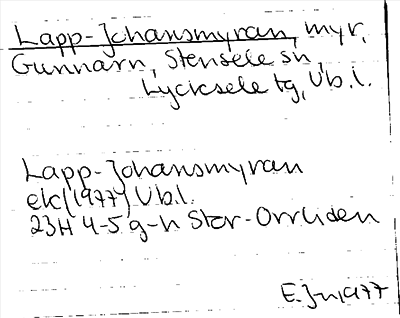 Lapp-Johansmyran, myr,
Gunnarn, Stensele sn,
Lycksele tg, Vb.l.
Lapp-Johansmyran
ek (1977) Vb.l.
23H 4-5 g-h Stor-Orrliden
E. Jn 1977